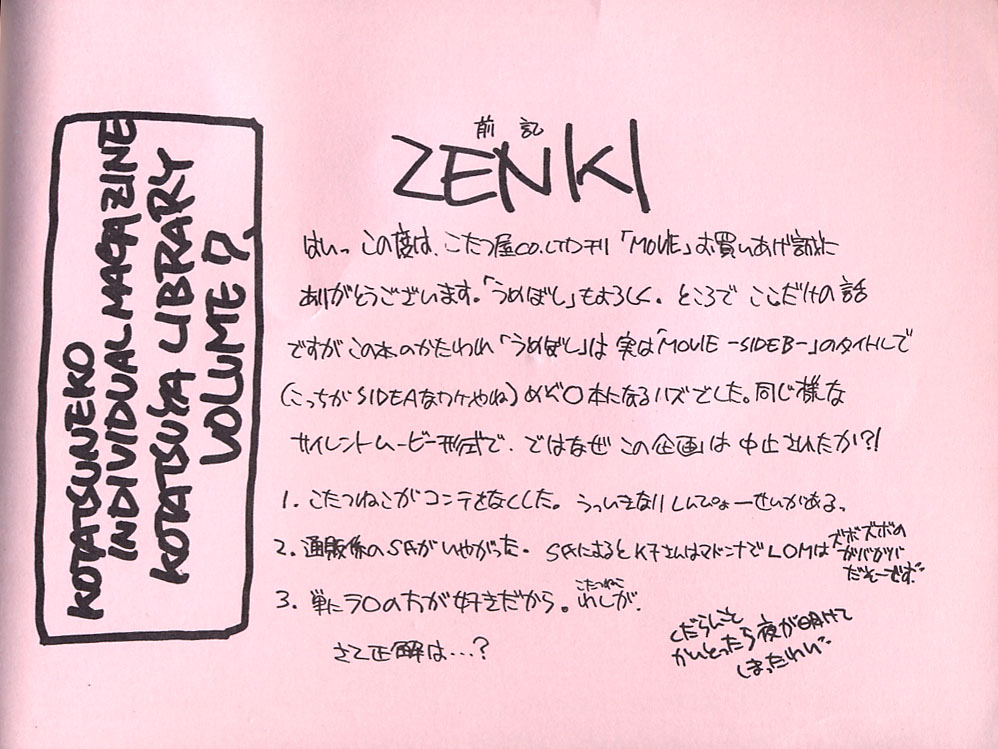 KOTATSUNEKO
INDIVIDUAL MAGAZINE
KOTATSUYA LIBRARY
VOLUME 7.
前記
ZENKI
はいっ この度は、こたつ屋CO.LTD刊「MOVIE」お買いあげ誠に
ありがとうございます。「うめぼし」もよろしく。ところで ここだけの話
ですが この本のかたわれ「うめぼし」は 実は「MOVIE -SIDE B-」のタイトルで
(こっちが SIDE A なワケやね) めぞ〇本になるハズでした。同じ様な
サイレントムービー形式で. ではなぜ この企画は 中止されたか?!
1. こたつねこがコンテをなくした。 うっいきなりしんぴょーせいがある、
2. 通販係のS氏がいやがった. S氏によるとK子さんはマドンナでLOMは ズボズボの
ガバガバ
だそーです.
3. 単にラ〇の方が好きだから。わしが.
こたつねこ
さて正解は…?
くだらんこと
かいとったら夜が明けて
しまったわい